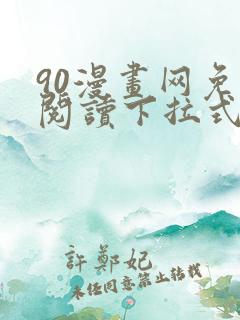 90漫畫网免
閱讀下拉式
許鄭妃
未经同意禁止转载